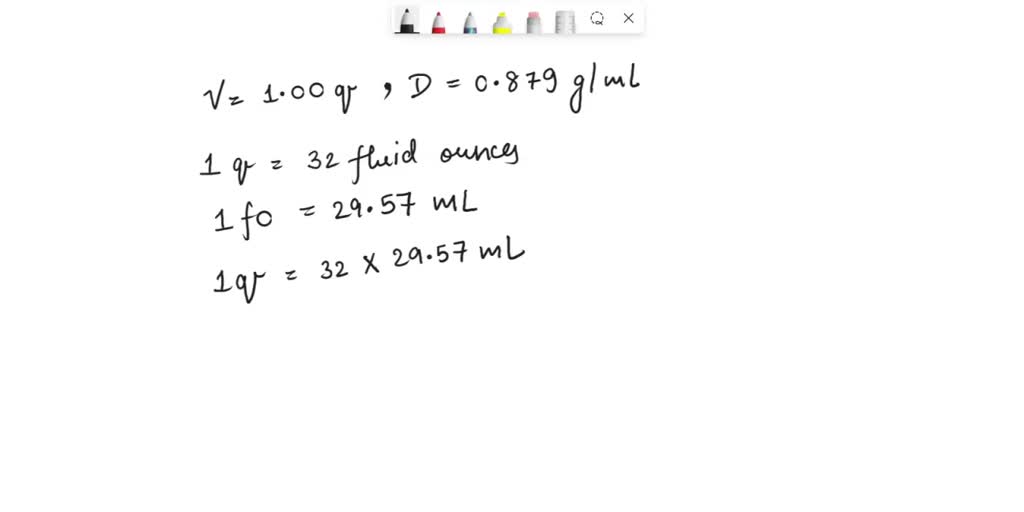 V = 1.00 qr , D = 0.879 g/mL
1 qr = 32 fluid ounces
1 fo = 29.57 mL
1 qr = 32 x 29.57 mL